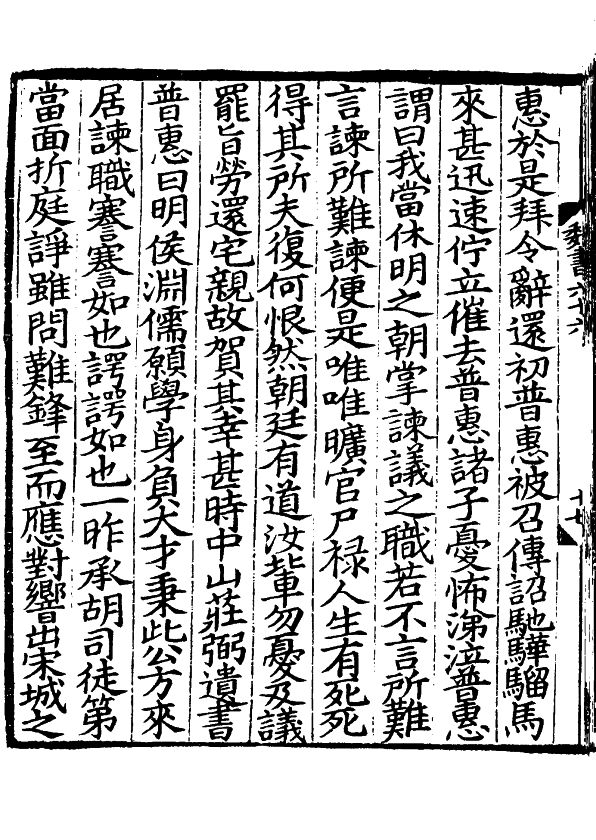 惠於是拜令辭還初普惠被召傳詔馳驊騮馬
來甚迅速佇立催去普惠諸子憂怖涕泣普惠
謂曰我當休明之朝掌諫議之職若不言所難
言諫所難諫便是唯唯曠官尸祿人生有死死
得其所夫復何恨然朝廷有道汝輩勿憂及議
罷旨勞還宅親故賀其幸甚時中山莊弼遺書
普惠曰明侯淵儒碩學身負大才秉此公方來
居諫職謇謇如也諤諤如也一昨承胡司徒第
當面折庭諍雖問難鋒至而應對響出宋城之
魏書六十六